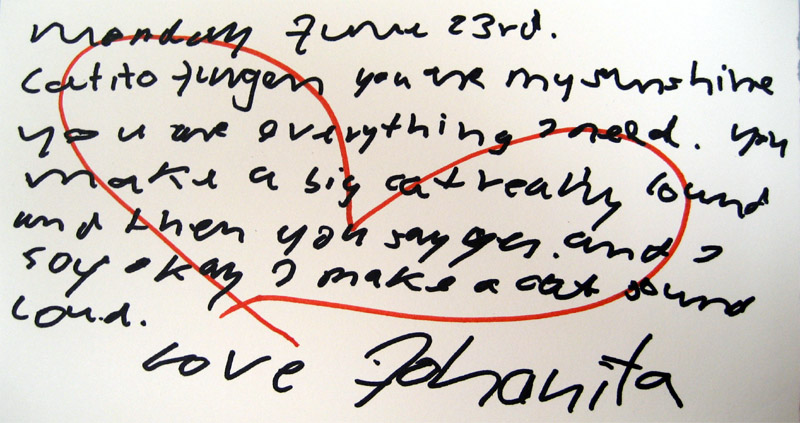 Monday June 23rd.
Catito Jurgen you are my sunshine
you are everything I need. you
make a big cat really lound
and then you say yes. and I
say okay I make a cat sound
loud.
Love Johanita